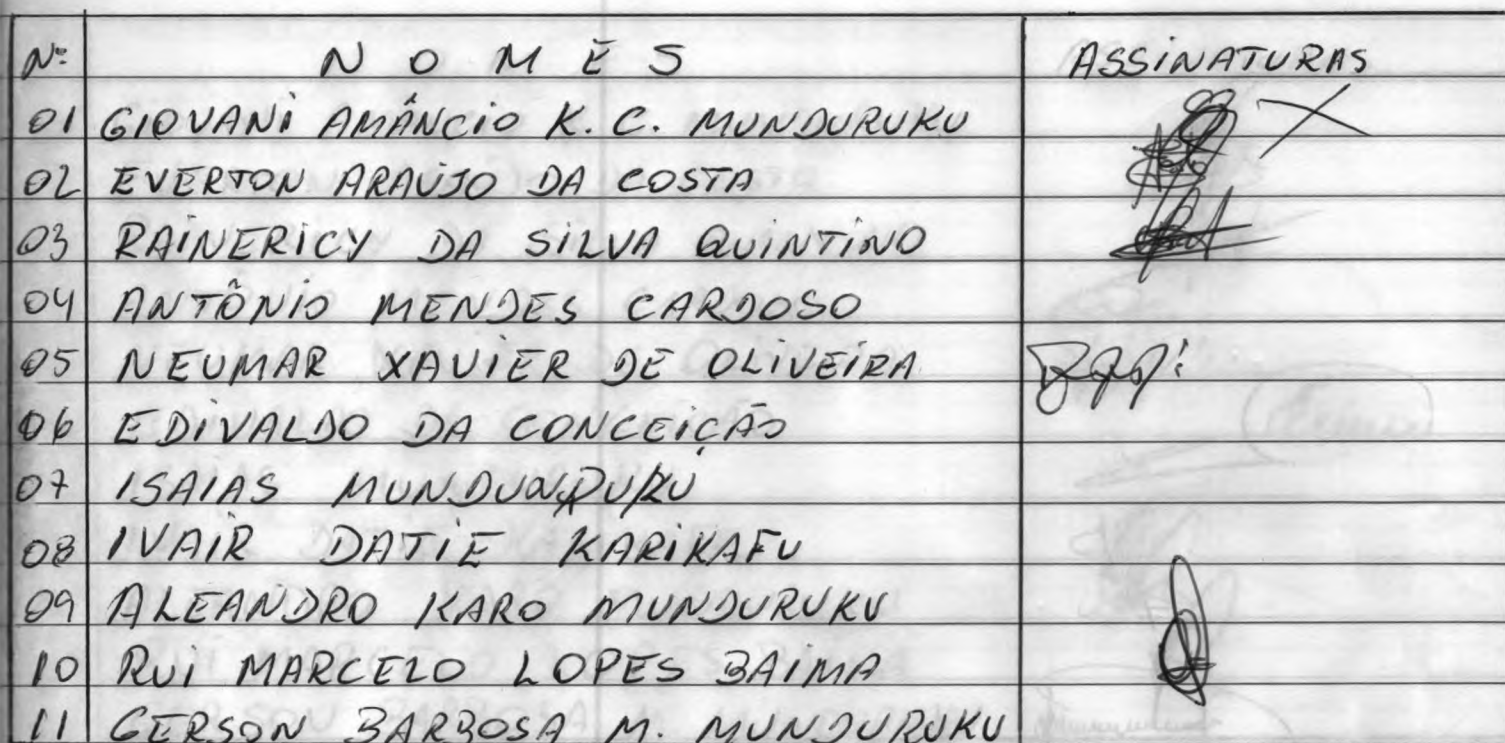 Nº NOMES ASSINATURAS
01 GIOVANI AMÂNCIO K. C. MUNDURUKU
02 EVERTON ARAÚJO DA COSTA
03 RAINERICY DA SILVA QUINTINO
04 ANTÔNIO MENDES CARDOSO
05 NEUMAR XAVIER DE OLIVEIRA
06 EDIVALDO DA CONCEIÇÃO
07 ISAIAS
08 IVAIR DATIE KARIKAFU
09 ALEANDRO KARO MUNDURUKU
10 RUI MARCELO LOPES BAIMA
11 GERSON BARBOSA M. MUNDURUKU